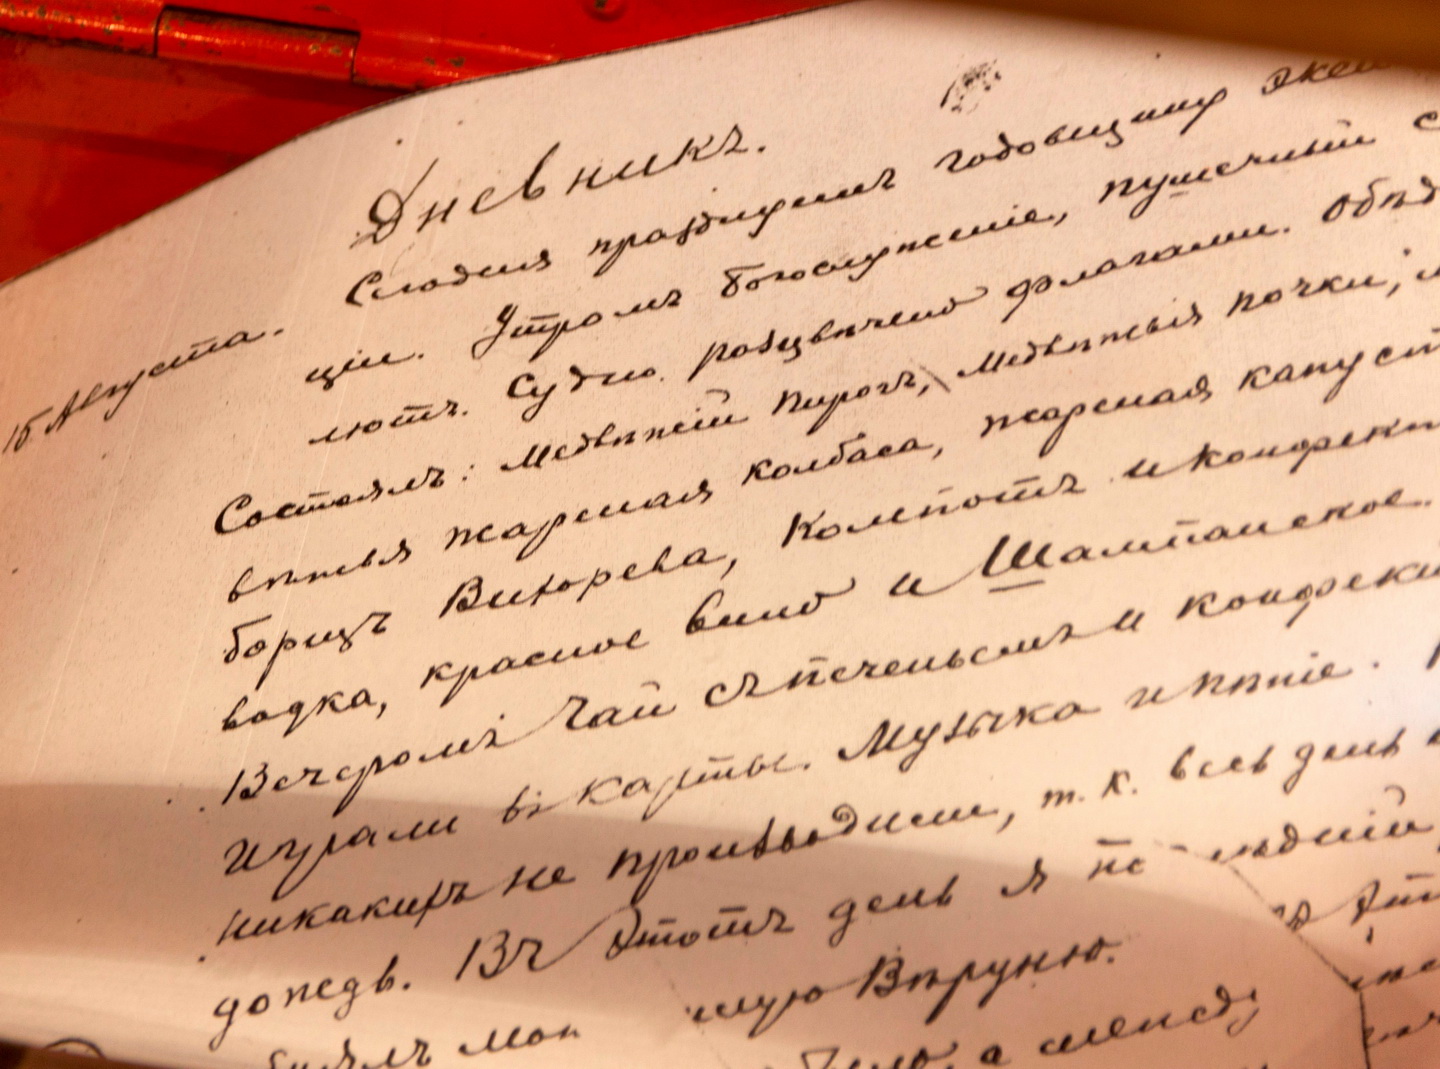 Дневникъ.
15 Августа. Сегодня празднуемъ годовщину
ціи. Утромъ богослуженіе, пушечный
лютъ. Судно расцвѣчено флагами. Обѣд
Состоялъ: Медвѣжій Пирогъ, Медвѣжьи почки,
вѣжья жареная колбаса, жареная капуст
борщъ Вихорева, Компотъ и конфект
водка, красное вино и Шампанское.
Вечеромъ Чай съ печеньемъ и конфект
Играли въ карты. Музыка и пѣніе.
никакихъ не производили, т. к. весь день
дождь. Въ Этотъ день я по ѣдній
мою милую Вѣруню.
было, а между